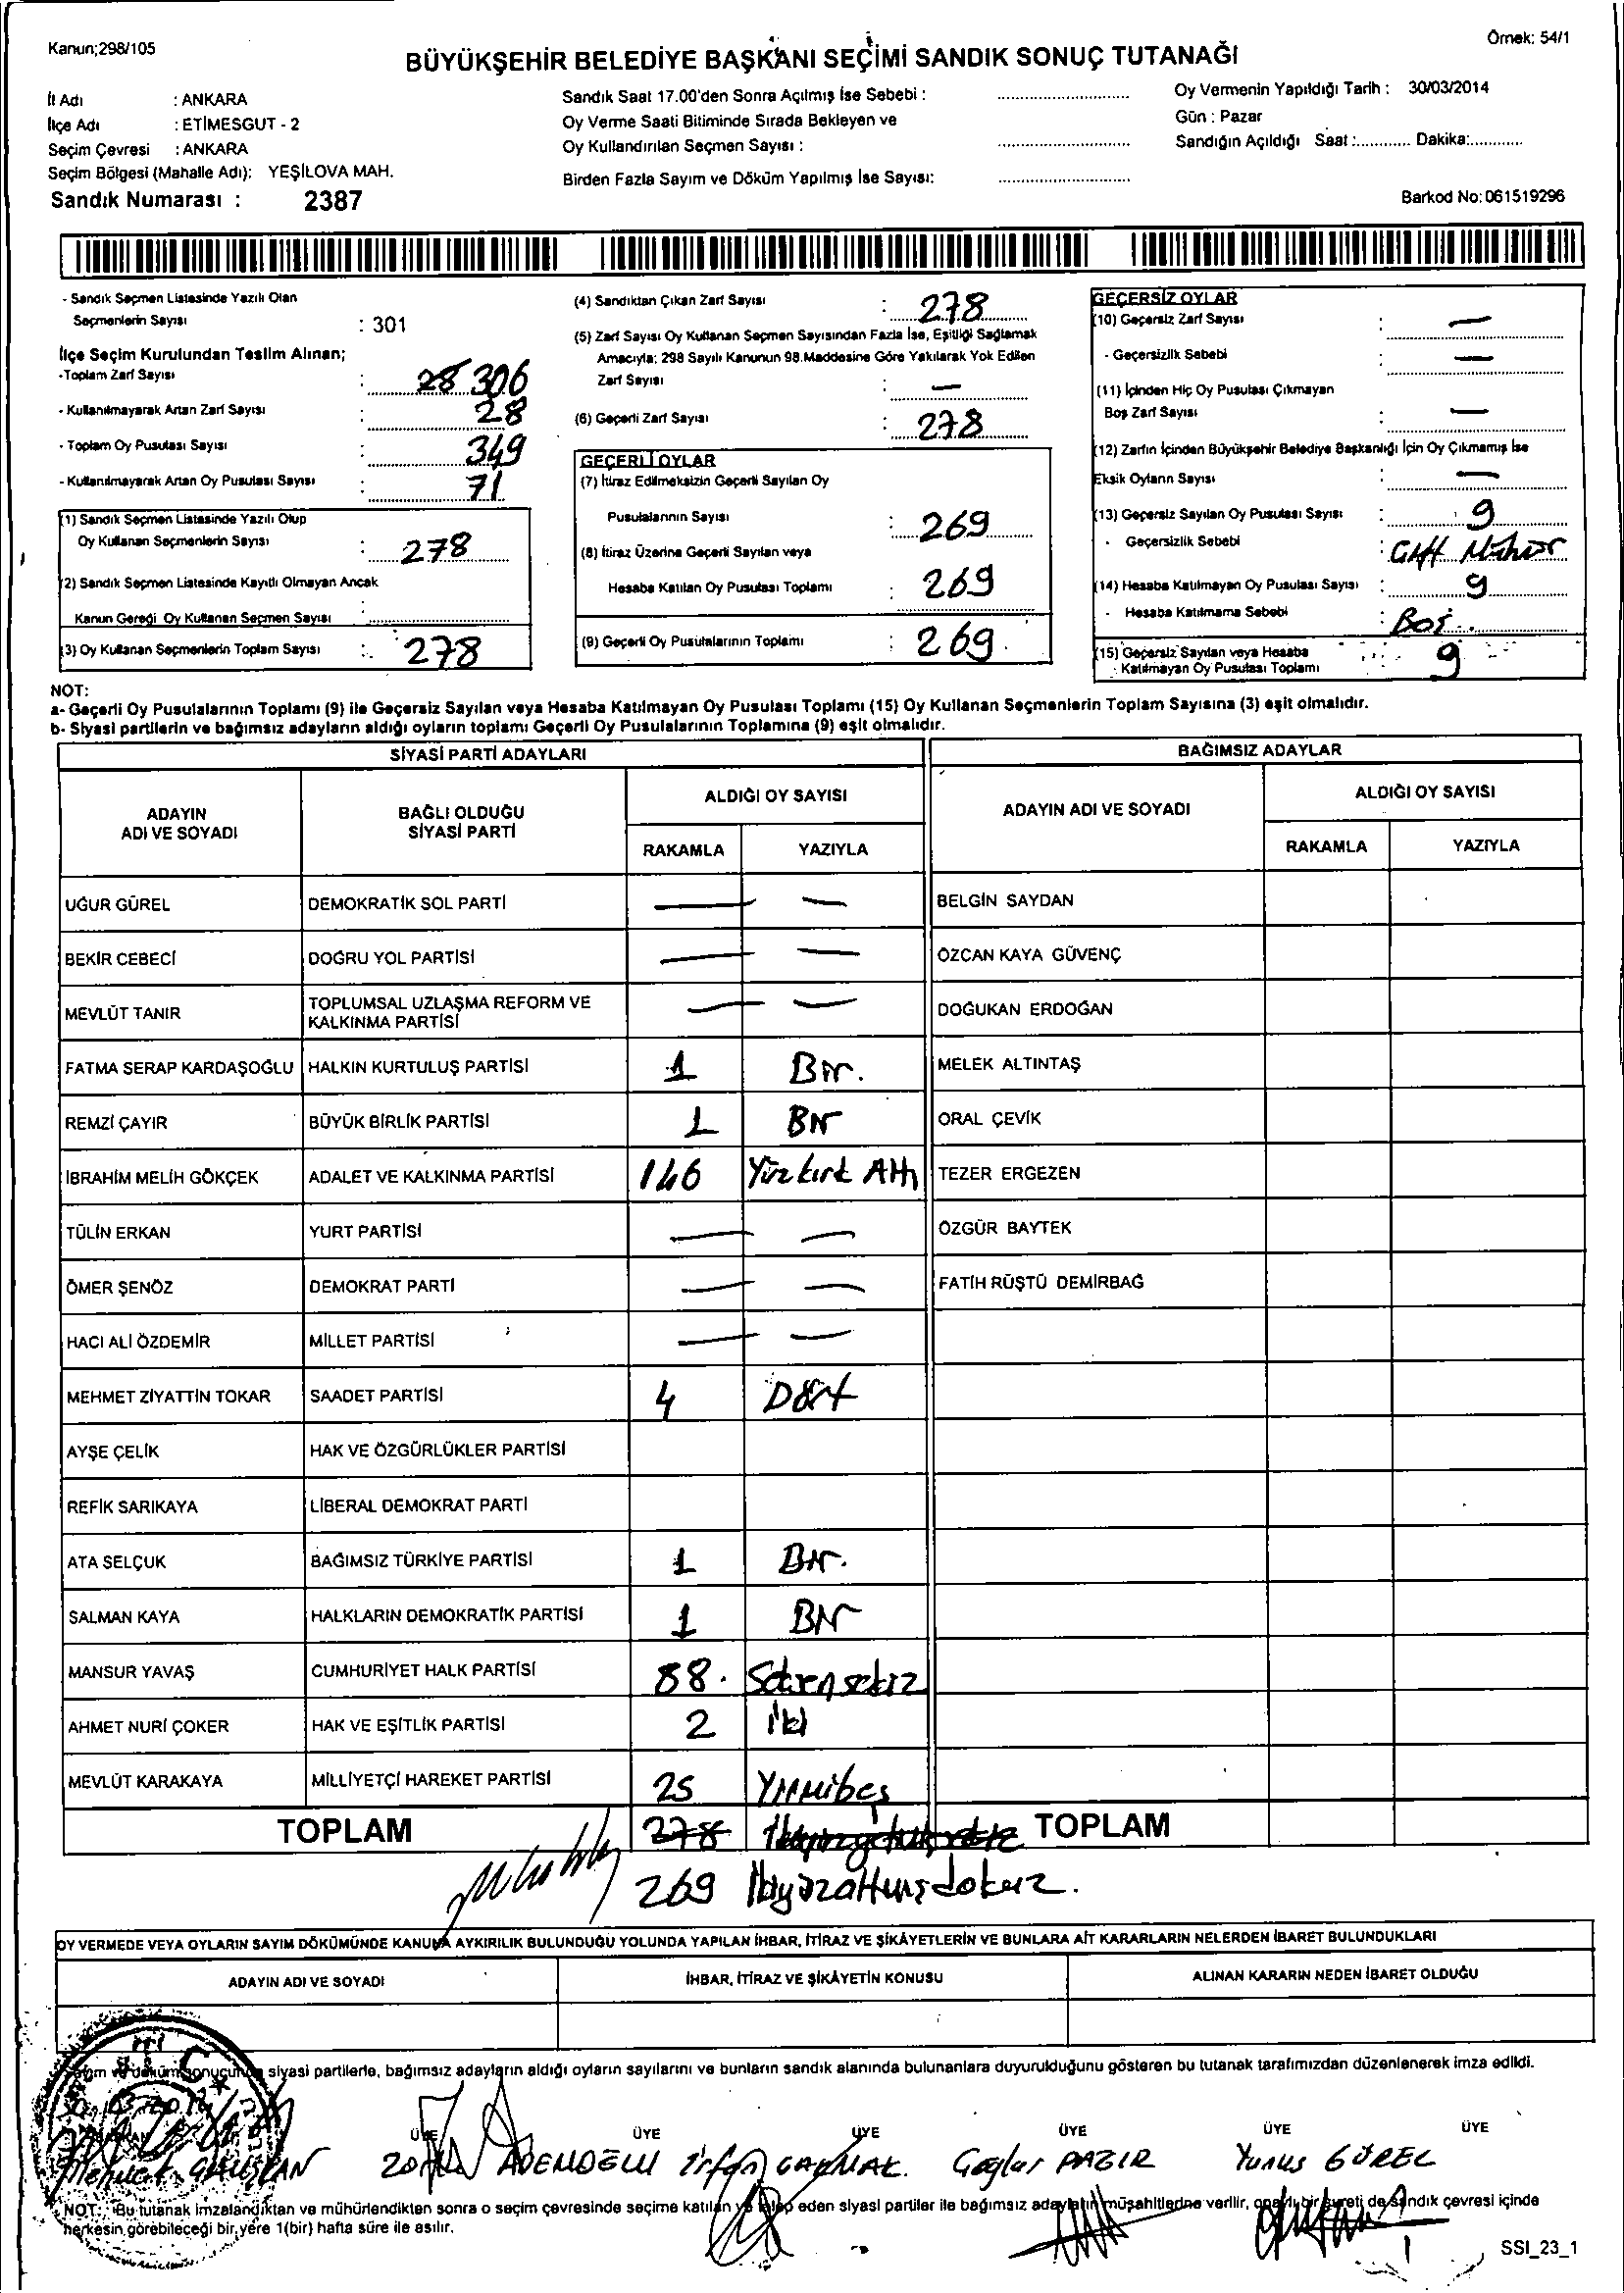 Kanun;298/105
Örnek: 54/1
BÜYÜKŞEHİR BELEDİYE BAŞKANI SEÇİMİ SANDIK SONUÇ TUTANAĞI
İl Adı : ANKARA
İlçe Adı : ETİMESGUT - 2
Seçim Çevresi : ANKARA
Seçim Bölgesi (Mahalle Adı): YEŞİLOVA MAH.
Sandık Numarası : 2387
Sandık Saat 17.00'den Sonra Açılmış İse Sebebi :
Oy Verme Saati Bitiminde Sırada Bekleyen ve
Oy Kullandırılan Seçmen Sayısı :
Birden Fazla Sayım ve Döküm Yapılmış İse Sayısı:
Oy Vermenin Yapıldığı Tarih : 30/03/2014
Gün : Pazar
Sandığın Açıldığı Saat :............ Dakika:............
Barkod No: 061519296
- Sandık Seçmen Listesinde Yazılı Olan
Seçmenlerin Sayısı : 301
İlçe Seçim Kurulundan Teslim Alınan;
-Toplam Zarf Sayısı : 28 306
- Kullanılmayarak Artan Zarf Sayısı : 28
- Toplam Oy Pusulası Sayısı : 349
- Kullanılmayarak Artan Oy Pusulası Sayısı : 71
(1) Sandık Seçmen Listesinde Yazılı Olup
Oy Kullanan Seçmenlerin Sayısı : 278
(2) Sandık Seçmen Listesinde Kayıtlı Olmayan Ancak
Kanun Gereği Oy Kullanan Seçmen Sayısı :
(3) Oy Kullanan Seçmenlerin Toplam Sayısı : 278
(4) Sandıktan Çıkan Zarf Sayısı : 278
(5) Zarf Sayısı Oy Kullanan Seçmen Sayısından Fazla İse, Eşitliği Sağlamak
Amacıyla; 298 Sayılı Kanunun 98.Maddesine Göre Yakılarak Yok Edilen
Zarf Sayısı : —
(6) Geçerli Zarf Sayısı : 278
GEÇERLİ OYLAR
(7) İtiraz Edilmeksizin Geçerli Sayılan Oy
Pusulalarının Sayısı : 269
(8) İtiraz Üzerine Geçerli Sayılan veya
Hesaba Katılan Oy Pusulası Toplamı : 269
(9) Geçerli Oy Pusulalarının Toplamı : 269
GEÇERSİZ OYLAR
(10) Geçersiz Zarf Sayısı : —
- Geçersizlik Sebebi : —
(11) İçinden Hiç Oy Pusulası Çıkmayan
Boş Zarf Sayısı : —
(12) Zarfın İçinden Büyükşehir Belediye Başkanlığı İçin Oy Çıkmamış İse
Eksik Oyların Sayısı : —
(13) Geçersiz Sayılan Oy Pusulası Sayısı : 9
- Geçersizlik Sebebi : Çift Mühür
(14) Hesaba Katılmayan Oy Pusulası Sayısı : 9
- Hesaba Katılmama Sebebi : Boş
(15) Geçersiz Sayılan veya Hesaba
Katılmayan Oy Pusulası Toplamı : 9
NOT:
a- Geçerli Oy Pusulalarının Toplamı (9) ile Geçersiz Sayılan veya Hesaba Katılmayan Oy Pusulası Toplamı (15) Oy Kullanan Seçmenlerin Toplam Sayısına (3) eşit olmalıdır.
b- Siyasi partilerin ve bağımsız adayların aldığı oyların toplamı Geçerli Oy Pusulalarının Toplamına (9) eşit olmalıdır.
SİYASİ PARTİ ADAYLARI BAĞIMSIZ ADAYLAR
ADAYIN ADI VE SOYADI BAĞLI OLDUĞU SİYASİ PARTİ ALDIĞI OY SAYISI ADAYIN ADI VE SOYADI ALDIĞI OY SAYISI
RAKAMLA YAZIYLA RAKAMLA YAZIYLA
UĞUR GÜREL DEMOKRATİK SOL PARTİ — — BELGİN SAYDAN
BEKİR CEBECİ DOĞRU YOL PARTİSİ — — ÖZCAN KAYA GÜVENÇ
MEVLÜT TANIR TOPLUMSAL UZLAŞMA REFORM VE KALKINMA PARTİSİ — — DOĞUKAN ERDOĞAN
FATMA SERAP KARDAŞOĞLU HALKIN KURTULUŞ PARTİSİ 1 Bir. MELEK ALTINTAŞ
REMZİ ÇAYIR BÜYÜK BİRLİK PARTİSİ 1 Bir ORAL ÇEVİK
İBRAHİM MELİH GÖKÇEK ADALET VE KALKINMA PARTİSİ 146 Yüzkırk Altı TEZER ERGEZEN
TÜLİN ERKAN YURT PARTİSİ — — ÖZGÜR BAYTEK
ÖMER ŞENÖZ DEMOKRAT PARTİ — — FATİH RÜŞTÜ DEMİRBAĞ
HACI ALİ ÖZDEMİR MİLLET PARTİSİ — —
MEHMET ZİYATTİN TOKAR SAADET PARTİSİ 4 Dört
AYŞE ÇELİK HAK VE ÖZGÜRLÜKLER PARTİSİ
REFİK SARIKAYA LİBERAL DEMOKRAT PARTİ
ATA SELÇUK BAĞIMSIZ TÜRKİYE PARTİSİ 1 Bir.
SALMAN KAYA HALKLARIN DEMOKRATİK PARTİSİ 1 Bir
MANSUR YAVAŞ CUMHURİYET HALK PARTİSİ 88. Seksensekiz
AHMET NURİ ÇOKER HAK VE EŞİTLİK PARTİSİ 2 İki
MEVLÜT KARAKAYA MİLLİYETÇİ HAREKET PARTİSİ 25 Yirmibeş
TOPLAM 278 TOPLAM
269 İkiyüzaltmışdokuz.
OY VERMEDE VEYA OYLARIN SAYIM DÖKÜMÜNDE KANUNA AYKIRILIK BULUNDUĞU YOLUNDA YAPILAN İHBAR, İTİRAZ VE ŞİKÂYETLERİN VE BUNLARA AİT KARARLARIN NELERDEN İBARET BULUNDUKLARI
ADAYIN ADI VE SOYADI İHBAR, İTİRAZ VE ŞİKÂYETİN KONUSU ALINAN KARARIN NEDEN İBARET OLDUĞU
siyasi partilerle, bağımsız adayların aldığı oyların sayılarını ve bunların sandık alanında bulunanlara duyurulduğunu gösteren bu tutanak tarafımızdan düzenlenerek imza edildi.
ÜYE ÜYE ÜYE ÜYE ÜYE ÜYE
İrfan ÇAKMAK. Çağlar PAZIR Yunus GÜREL
NOT: Bu tutanak imzalandıktan ve mühürlendikten sonra o seçim çevresinde seçime katılan ve talep eden siyasi partiler ile bağımsız adayların müşahitlerine verilir, onaylı bir sureti de sandık çevresi içinde
herkesin görebileceği bir yere 1(bir) hafta süre ile asılır.
SSI_23_1